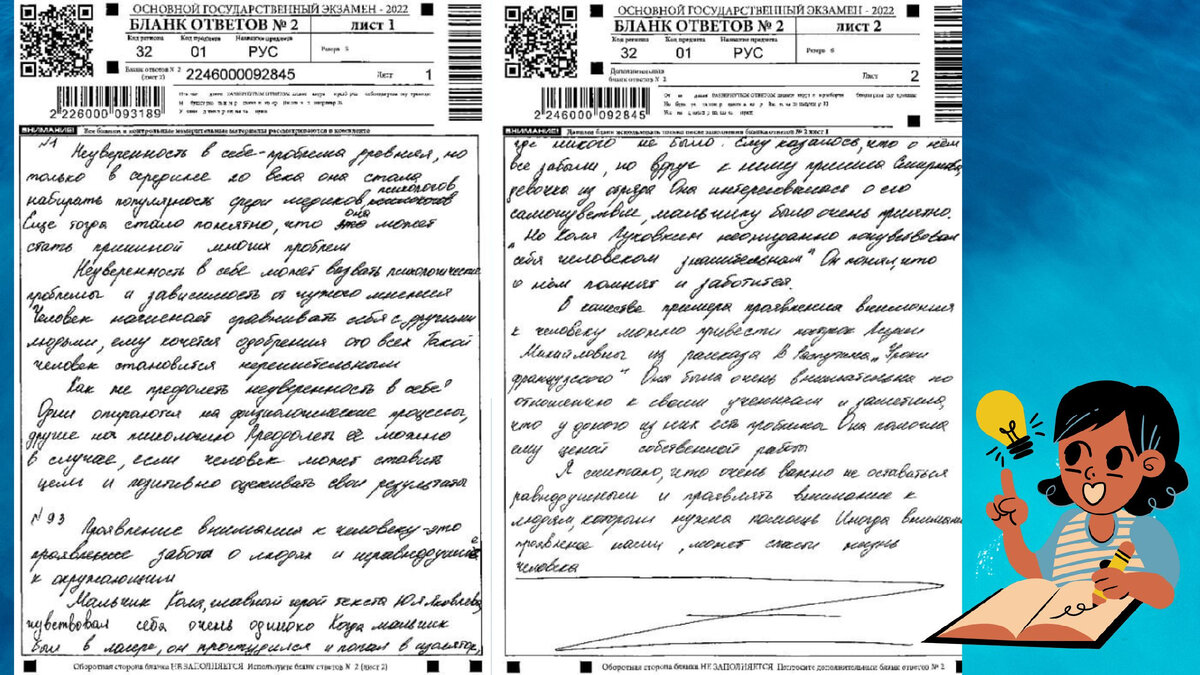 ОСНОВНОЙ ГОСУДАРСТВЕННЫЙ ЭКЗАМЕН - 2022
БЛАНК ОТВЕТОВ № 2
лист 1
Код региона Код предмета Название предмета
32 01 РУС
Резерв - 8
Бланк ответов № 2 (лист 2)
2246000092845
Лист 1
2226000093189
ВНИМАНИЕ! Все бланки и контрольные измерительные материалы рассматриваются в комплекте
№1
Неуверенность в себе - проблема древняя, но
только в середине 20 века она стала
набирать популярность среди медиков, психологов
Еще тогда стало понятно, что она может
стать причиной многих проблем
Неуверенность в себе может вызвать психологические
проблемы и зависимость от чужого мнения
Человек начинает сравнивать себя с другими
людьми, ему хочется одобрения ото всех Такой
человек становится нерешительным
Как же предолеть неуверенность в себе?
Одни опираются на физиологические процессы,
другие на психологию Преодолеть её можно
в случае, если человек может ставить
цели и позитивно оценивать свои результаты
№ 9 3
Проявление внимания к человеку - это
проявление заботы о людях и неравнодушие
к окружающим
Мальчик Коля, главный герой текста Ю Я Яковлева,
чувствовал себя очень одиноко Когда мальчик
был в лагере, он простудился и попал в изолятор,
Оборотная сторона бланка НЕ ЗАПОЛНЯЕТСЯ Используйте бланк ответов № 2 (лист 2)
ОСНОВНОЙ ГОСУДАРСТВЕННЫЙ ЭКЗАМЕН - 2022
БЛАНК ОТВЕТОВ № 2
лист 2
Код региона Код предмета Название предмета
32 01 РУС
Резерв - 6
Дополнительный бланк ответов № 2
Лист 2
2246000092845
ВНИМАНИЕ! Данный бланк использовать только после заполнения бланка ответов № 2 лист 1
где никого не было. Ему казалось, что о нем
все забыли, но вдруг к нему пришла Смирнова,
девочка из отряда Она интересовалась о его
самочувствие, мальчику было очень приятно.
„Но Коля Луковкин неожиданно почувствовал
себя человеком значительным" Он понял, что
о нём помнят и заботится.
В качестве примера проявления внимания
к человеку можно привести Лидии
Михайловны из рассказа В Распутина „Уроки
французского" Она была очень внимательна по
отношению к своим ученикам и заметила,
что у одного из них есть проблема Она помогла
ему ценой собственной работы
Я считаю, что очень важно не оставаться
равнодушными и проявлять внимание к
людям, которым нужна помощь Иногда внимание
проявленое нами, может спасти жизнь
человека
Оборотная сторона бланка НЕ ЗАПОЛНЯЕТСЯ Попросите дополнительный бланк ответов № 2